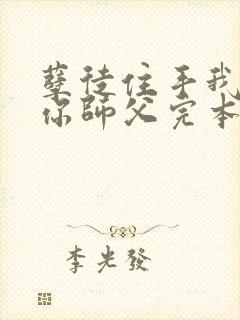 孽徒住手我
你師父完本
李光發